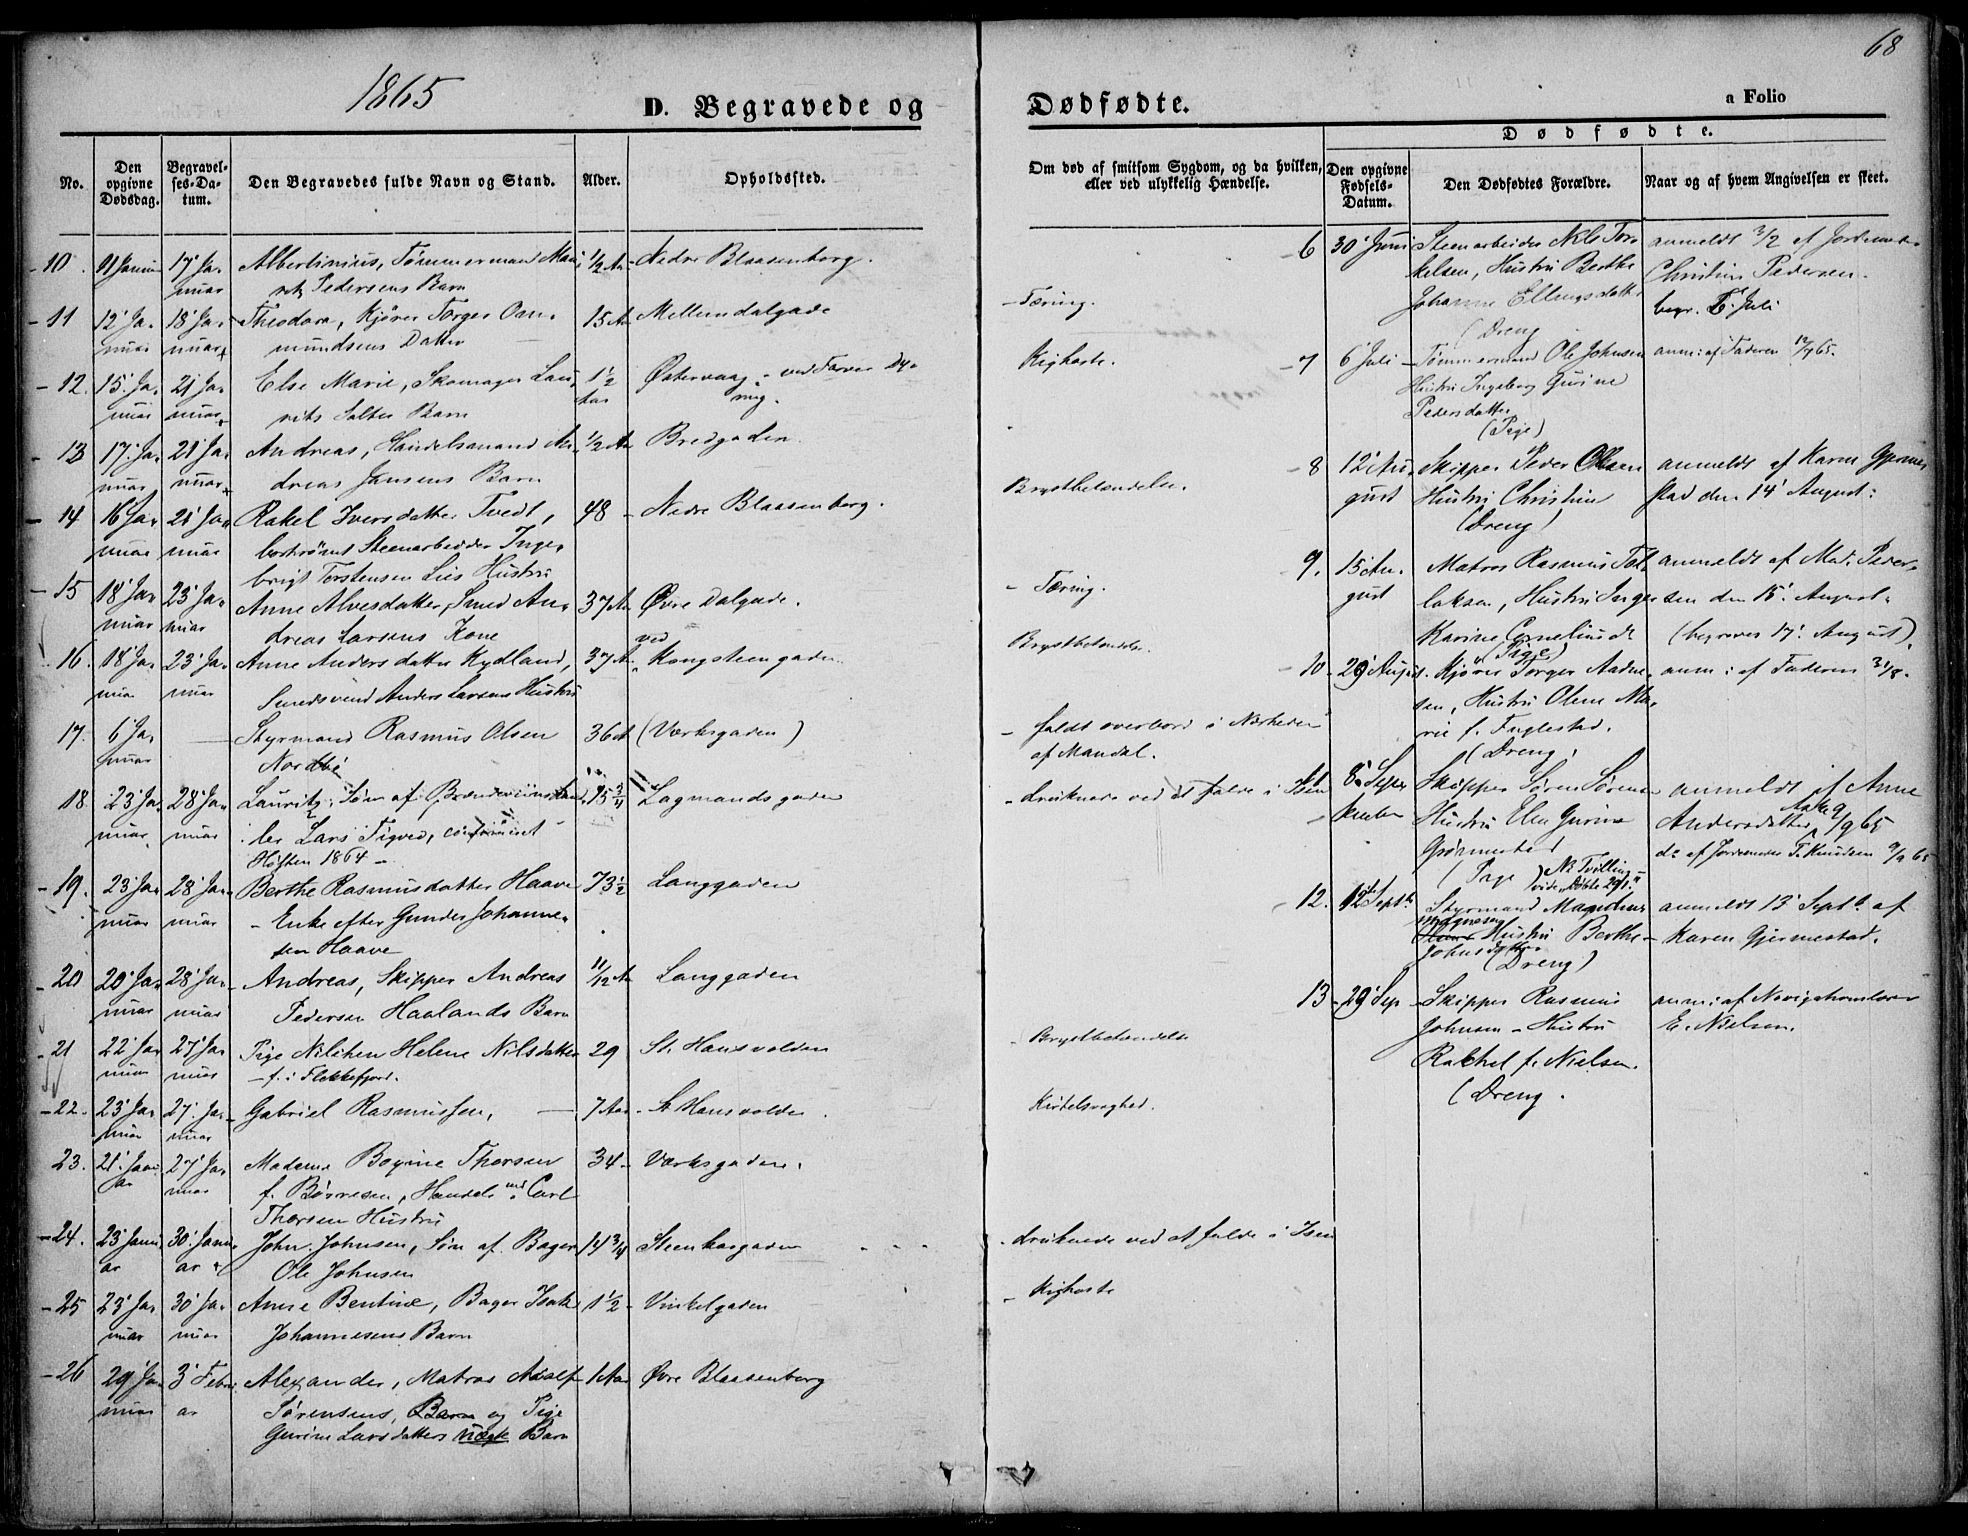 1865
D. Begravede og
No.
Den opgivne Dødsdag.
Begravelses-Datum.
Den Begravedes fulde Navn og Stand.
Alder.
Opholdssted.
10. 11 Januar 17' Januar Albertinius, Tømmermand Pedersens Barn 1/2 Aar Nedre Blaasenborg.
11 12' Januar 18' Januar Theodora, Kjører Torger Osmundsens Datter 15 Aar Mellemdalgade
12. 15' Januar 21' Januar Else Marie, Skomager Laurits Salter Barn 1 1/2 Aar Østervaag ved Farver Dyring.
13 17' Januar 21' Januar Andreas, Handelsmand Andreas Jansens Barn 1/2 Aar Bredgaden
14 16 Januar 21' Januar Rakel Iversdatter Tvedt, bortrømt Steenarbeider Ingebrigt Torstensen Lies Hustru 48 Nedre Blaasenborg.
15 18' Januar 23' Januar Anne Alvesdatter, Smed Andreas Larsens Kone 37 Aar Øvre Dalgade.
16. 18' Januar 23' Januar Anne Andersdatter Kydland, Smedsvend Anders Larsens Hustru 37 Aar ved Kongsteengaden
17. 6' Januar Styrmand Rasmus Olsen Nordbø 36 A (Værksgaden)
18. 23' Januar 28' Januar Lauritz, Søn af Brændeviinshandler Lars Tigved, confirmeret Høsten 1864 15 3/4 Lagmandsgaden
19. 23' Januar 28' Januar Berthe Rasmusdatter Haave - Enke efter Gunder Johannesen Haave 73 1/2 Langgaden
20 20' Januar 28' Januar Andreas, Skipper Andreas Pedersen Haalands Barn 11/12 Aar Langgaden
21 22' Januar 27' Januar Pige Niliken Helene Nilsdatter - f. i Flekkefjord. 29 St. Hansvolden
22. 23' Januar 27' Januar Gabriel Rasmussen, 7 Aar St Hansvolden
23. 21' Januar 27' Januar Madame Bogine Thorsen f. Børresen, Handelsmd Carl Thorsen Hustru 34 Værksgaden.
24. 23' Januar 30' Januar John Johnsen, Søn af Bager Ole Johnsen 14 3/4 Steenkargaden
25 23' Januar 30' Januar Anne Bentine, Bager Isak Johannesens Barn 1 1/2 Vinkelgaden
26 29' Januar 3' Februar Alexander, Matros Adolf Sørensens, Barn og Pige Gurine Larsdatters uægte Barn 1 Aar Øvre Blaasenborg
68
Dødfødte.
a Folio
Om død af smitsom Sygdom, og da hvilken, eller ved ulykkelig Hændelse.
Dødfødte.
Den opgivne Fødsels-Datum.
Den Dødfødtes Forældre.
Naar og af hvem Angivelsen er skeet.
Tæring.
Kighoste.
Brystbetændelse.
Tæring.
Brystbetændelse.
faldt overbord i Nærheden af Mandal.
druknede ved at falde i Isen
Brystbetændelse
Kirtelsvaghed.
druknede ved at falde i Isen
Kighoste
6 30' Juni Steenarbeider Nils Torkelsen, Hustru Berthe Johanne Ellingsdatter (Dreng anmeldt 3/2 af Jordemoder Christine Pedersen. begr. Juli
7 6' Juli Tømmermand Ole Johnsen Hustru Ingeborg Gurine Pedersdatter (Pige) anm: af Faderen 12/7 65.
8 12' August Skipper Peder Olsen Hustru Christine (Dreng) anmeldt af Karen Gjermestad den 14' August.
9. 15' August Matros Rasmus Tollaksen, Hustru Inger Karine Corneliusd. (Pige) anmeldt af Mad. Pedersen den 15' August. (begraves 17' August).
10 29' August. Kjører Torger Aadnesen, Hustru Olene Marie f. Fuglestad. (Dreng. anm: af Faderen 31/8.
11 8' September Skipper Søren Sørensen Hustru Elen Gurine Grønnestad (Pige) NB Tvilling vide Døbte 291. anmeldt af Anne Andersdatter 9/9 65 do af Jordemoder T. Knudsen 9/9 65
12. 12' Septb Styrmand Magnus Magnesen Olsens Hustru Berthe Johnsdatter (Dreng) anmeldt 13' Septb. af Karen Gjermestad.
13 29' Sep Skipper Rasmus Johnsen - Hustru Rachel f. Nielsen. (Dreng. anm: af Navigationslærer E. Nielsen.